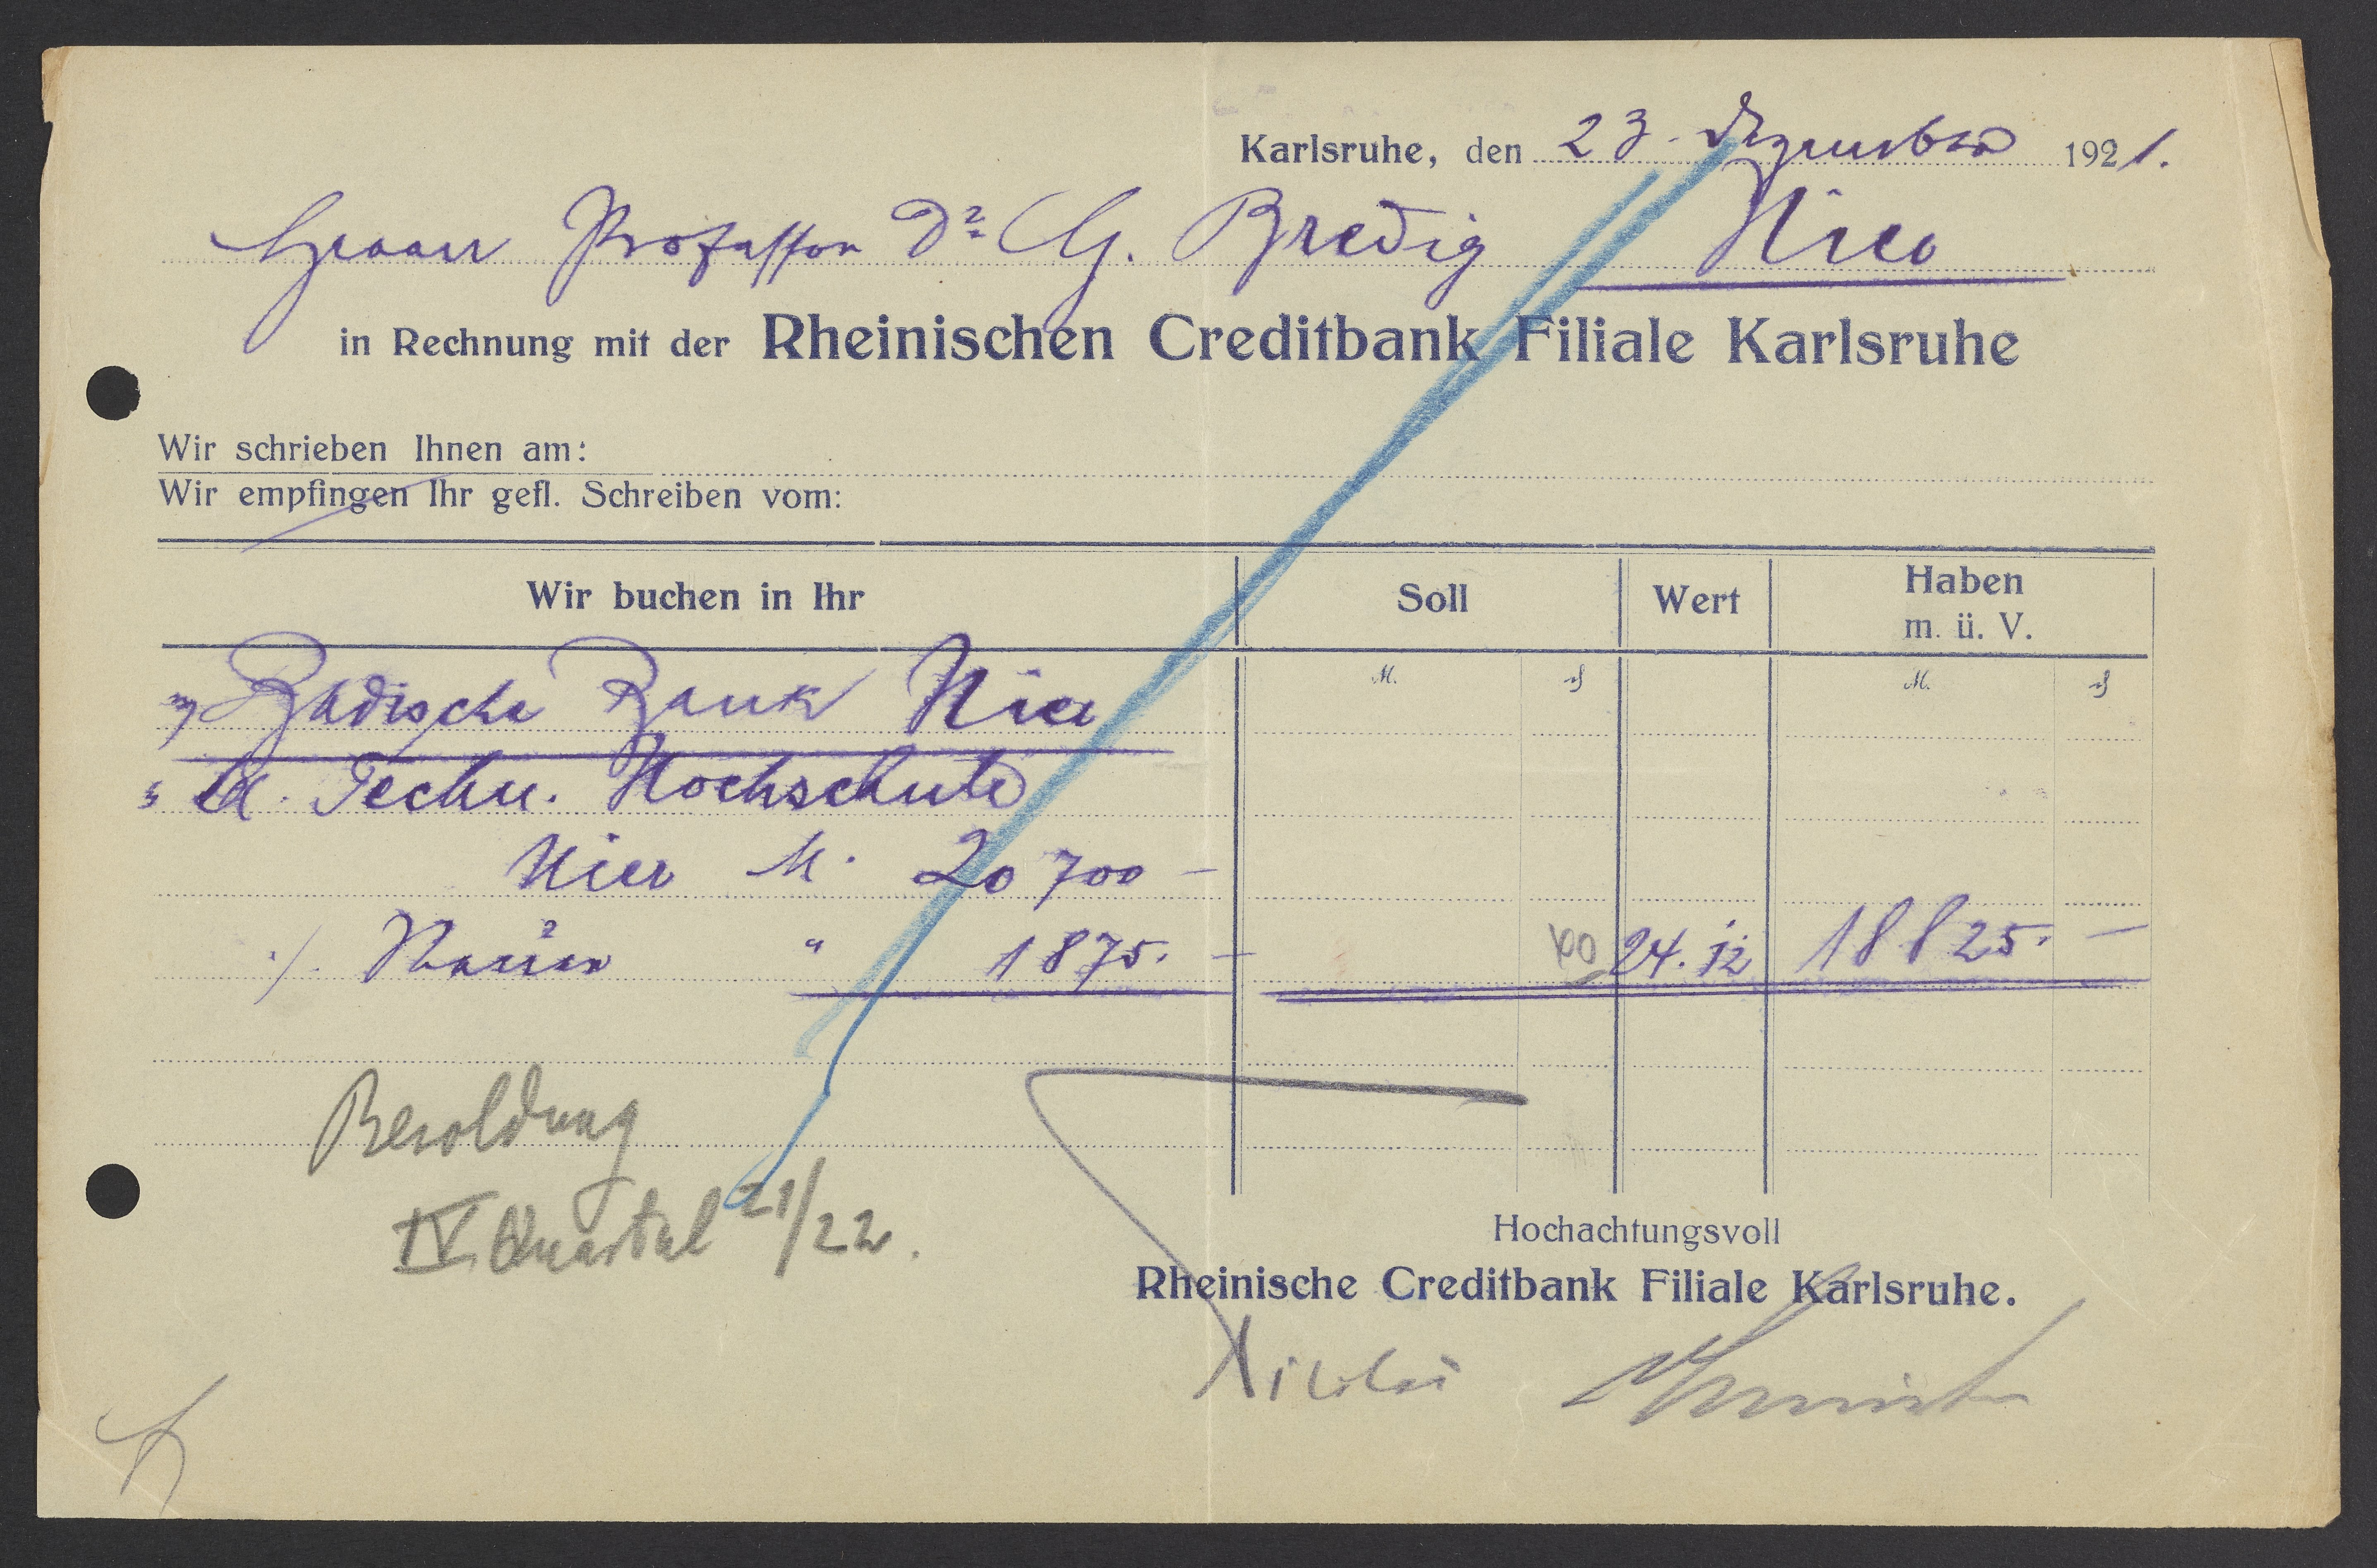 Karlsruhe, den 23. Dezember 1921.
Herrn Professor Dr. G. Bredig Hier
in Rechnung mit der Rheinischen Creditbank Filiale Karlsruhe
Wir schrieben Ihnen am:
Wir empfingen Ihr gefl. Schreiben vom:
Wir buchen in Ihr Soll Wert Haben
m. ü. V.
M. ₰ M. ₰
Badische Bank Hier
Techn. Hochschule
Hier M. 20 700 -
./. Steuer " 1875. - 24. 12 18825. -
Besoldung
IV. Quartal 21/22.
Hochachtungsvoll
Rheinische Creditbank Filiale Karlsruhe.